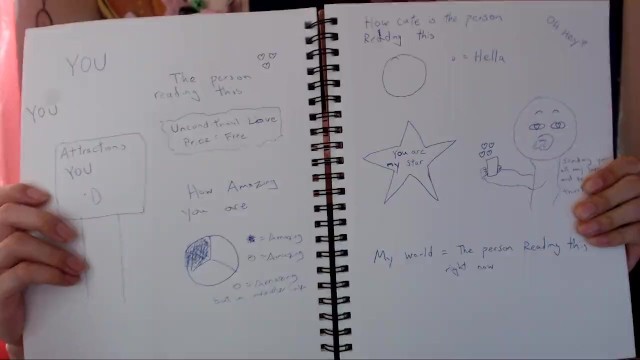 YOU
YOU
Attractions
YOU
:)
The person
reading this
Unconditional Love
Price: Free
How Amazing
you are
= Amazing
= Amazing
= Amazing
but a
How cute is the person
Reading this
= Hella
Oh Hey!
you are
my star
Sending you
all my
My world = The person Reading this
right now